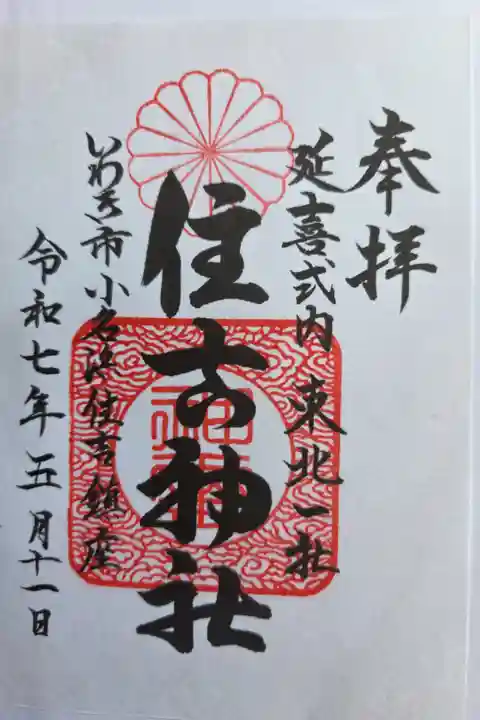 奉拝
延喜式内 東北一社
住吉神社
いわき市小名浜住吉鎮座
令和七年五月十一日